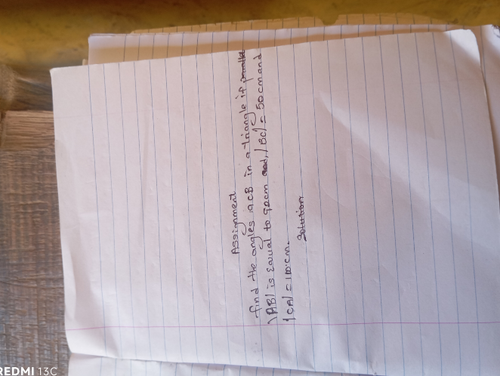 Assignment
find the angles ACB in a triangle if
|AB| is equal to 90cm and, |BC| = 50cm and
|CA| = 110cm.
Solution
REDMI 13C